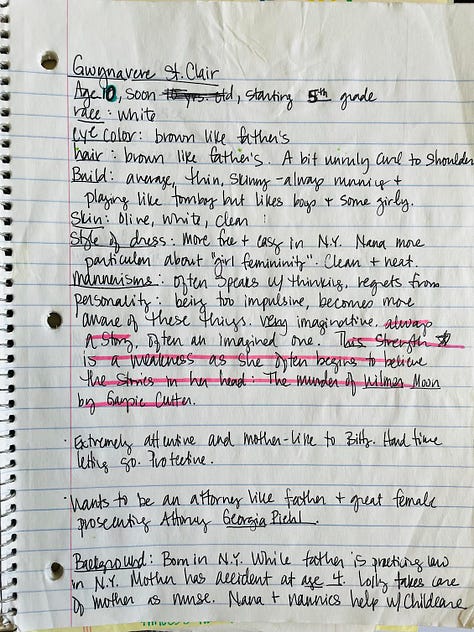 Gwynavere St. Clair
Age 10, soon 10 yrs. old, starting 5th grade
race: white
eye color: brown like father's
hair: brown like father's. A bit unruly curl to shoulders
Build: average, thin, skinny - always running +
playing like tomboy but likes boys + some girly.
Skin: olive, white, clean
Style of dress: More free + easy in N.Y. Nana more
particular about "girl femininity". Clean + neat.
mannerisms: often speaks w/ thinking, regrets from
personality: being too impulsive, becomes more
aware of these things. very imaginative. always
a story, often an imagined one. This strength
is a weakness as she often begins to believe
the stories in her head: The murder of Wilmer Moon
by Cutter.
· Extremely attentive and mother-like to Bitty. Hard time
letting go. Protective.
· Wants to be an attorney like father + great female
prosecuting Attorney Georgia Piehl.
Background: Born in N.Y. While father is practicing law
in N.Y. Mother has accident at age 4. Lolly takes care
of mother as nurse. Nana + nannies help w/ Childcare